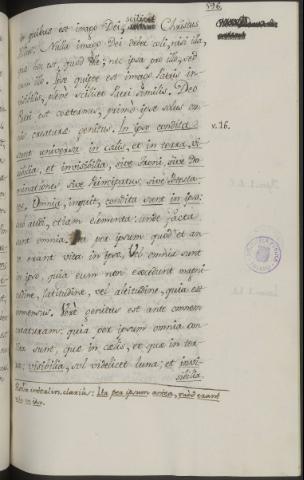 196
in quibus est imago Dei, scilicet Christus
filius. Nulla imago Dei debet coli, nisi illa,
quae hoc est, quod ille; nec ipsa pro illo, sed
cum illo. Ipse quippe est imago Patris in-
visibilis, plenè scilicet Patri similis. Deo
Patri est coeternus, primò ipse solus om-
nis creaturae genitus. In ipso condita
sunt universa in caelis, et in terra, vi-
sibilia, et invisibilia, sive throni, sive do-
minationes, sive Principatus, sive Potesta-
tes. Omnia, inquit, condita sunt in ipso;
etiam elementa: unde facta
sunt omnia. per ipsum quod et an-
erant vita in ipso. Vel omnia sunt
in ipso, quia eum non excedunt magni-
tudine, latitudine, vel altitudine, quia est
immensus. Verè genitus est ante omnem
creaturam; quia per ipsum omnia con-
dita sunt, quae in caelis, et quae in ter-
ra; visibilia, sol videlicet luna; et invi-
sibilia
v. 16.
clarius: Ita per ipsum antea, quod erant
vita in ipso.